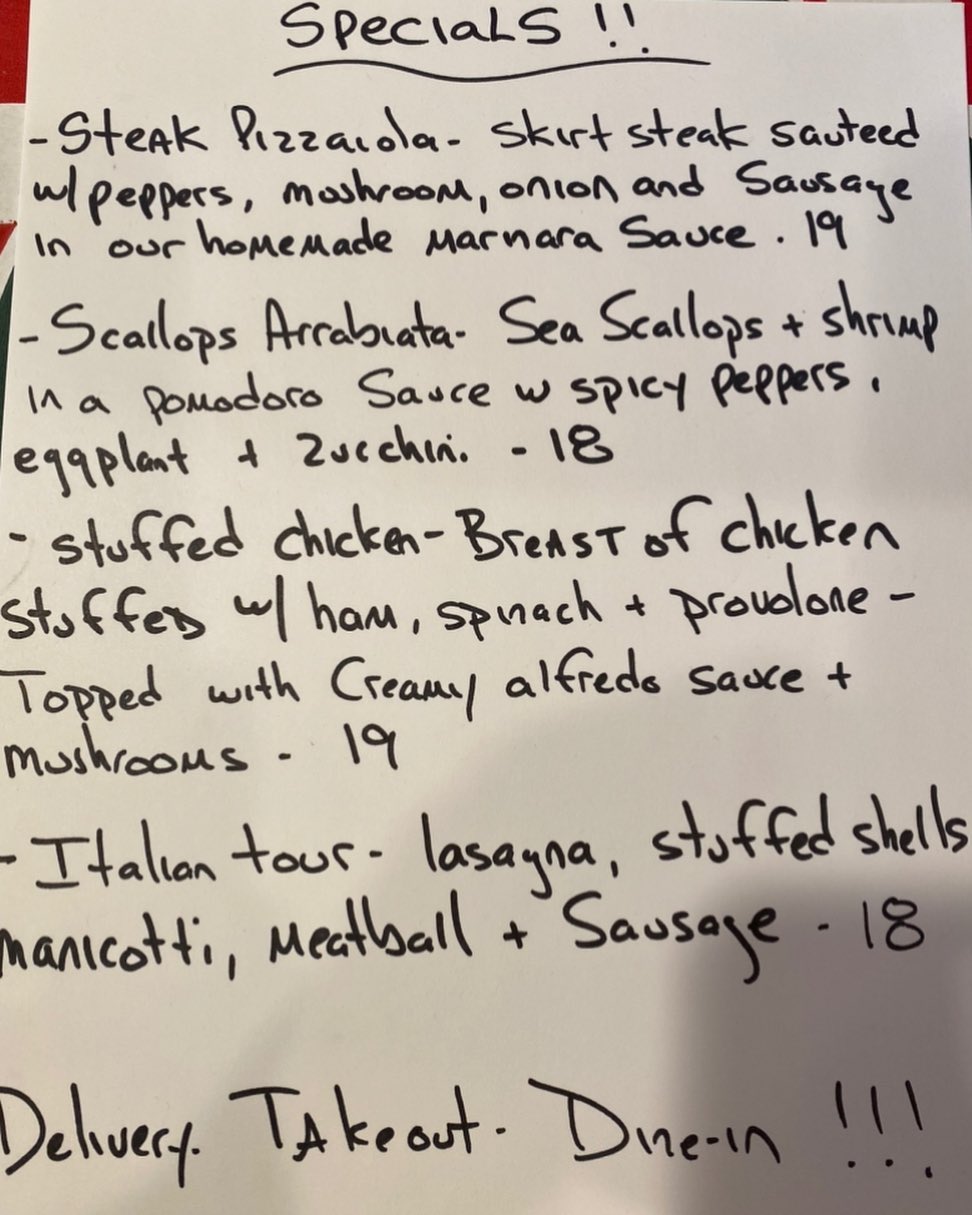 Specials !!
- Steak Pizzaiola - skirt steak sauteed
w/ peppers, mushroom, onion and Sausage
in our homemade Marnara Sauce. 19
- Scallops Arrabiata - Sea Scallops + shrimp
in a pomodoro Sauce w spicy peppers,
eggplant + Zucchini. - 18
- stuffed chicken - Breast of chicken
stuffed w/ ham, spinach + provolone -
Topped with Creamy alfredo sauce +
mushrooms - 19
- Italian tour - lasagna, stuffed shells
manicotti, Meatball + Sausage - 18
Delivery. Takeout - Dine-in !!!